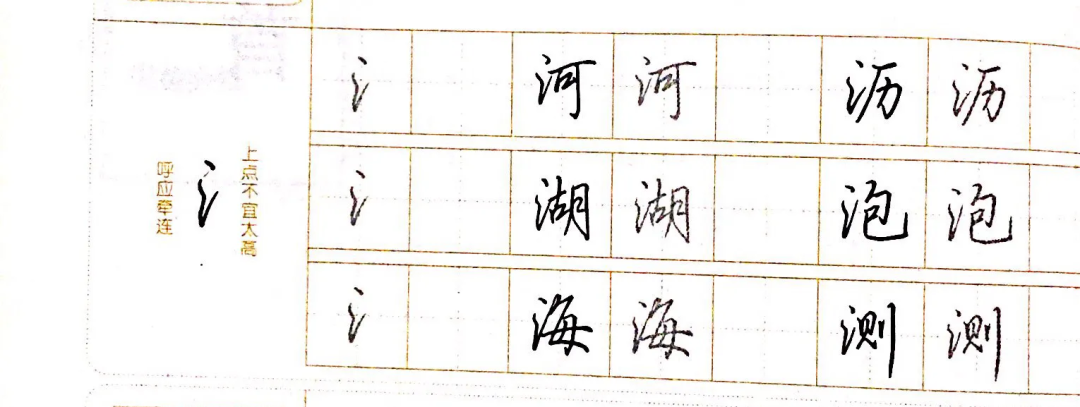 上点不宜太高
呼应牵连
氵
氵 河 河 沥 沥
氵 湖 湖 泡 泡
氵 海 海 测 测